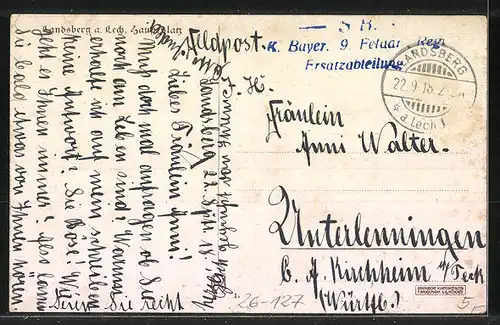 Landsberg a. Lech, Hauptplatz
Feldpost.
— S. B.
K. Bayer. 9. Feldar.-Reg.
Ersatzabteilung
LANDSBERG
22.9.18.
a. Lech 1
Fräulein
Anni Walter.
Unterlenningen
b. A. Kirchheim u/Teck
(Württb.)
Landsberg 22. Sept. 18.
Liebes Fräulein Anni!
Muß doch mal anfragen ob Sie
noch am Leben sind? Warum
erhalte ich auf mein schreiben
keine Antwort? Sie Böse! Wie
geht es Ihnen immer?
Sie bald etwas von Ihnen hören
Seien Sie recht
26-127
5